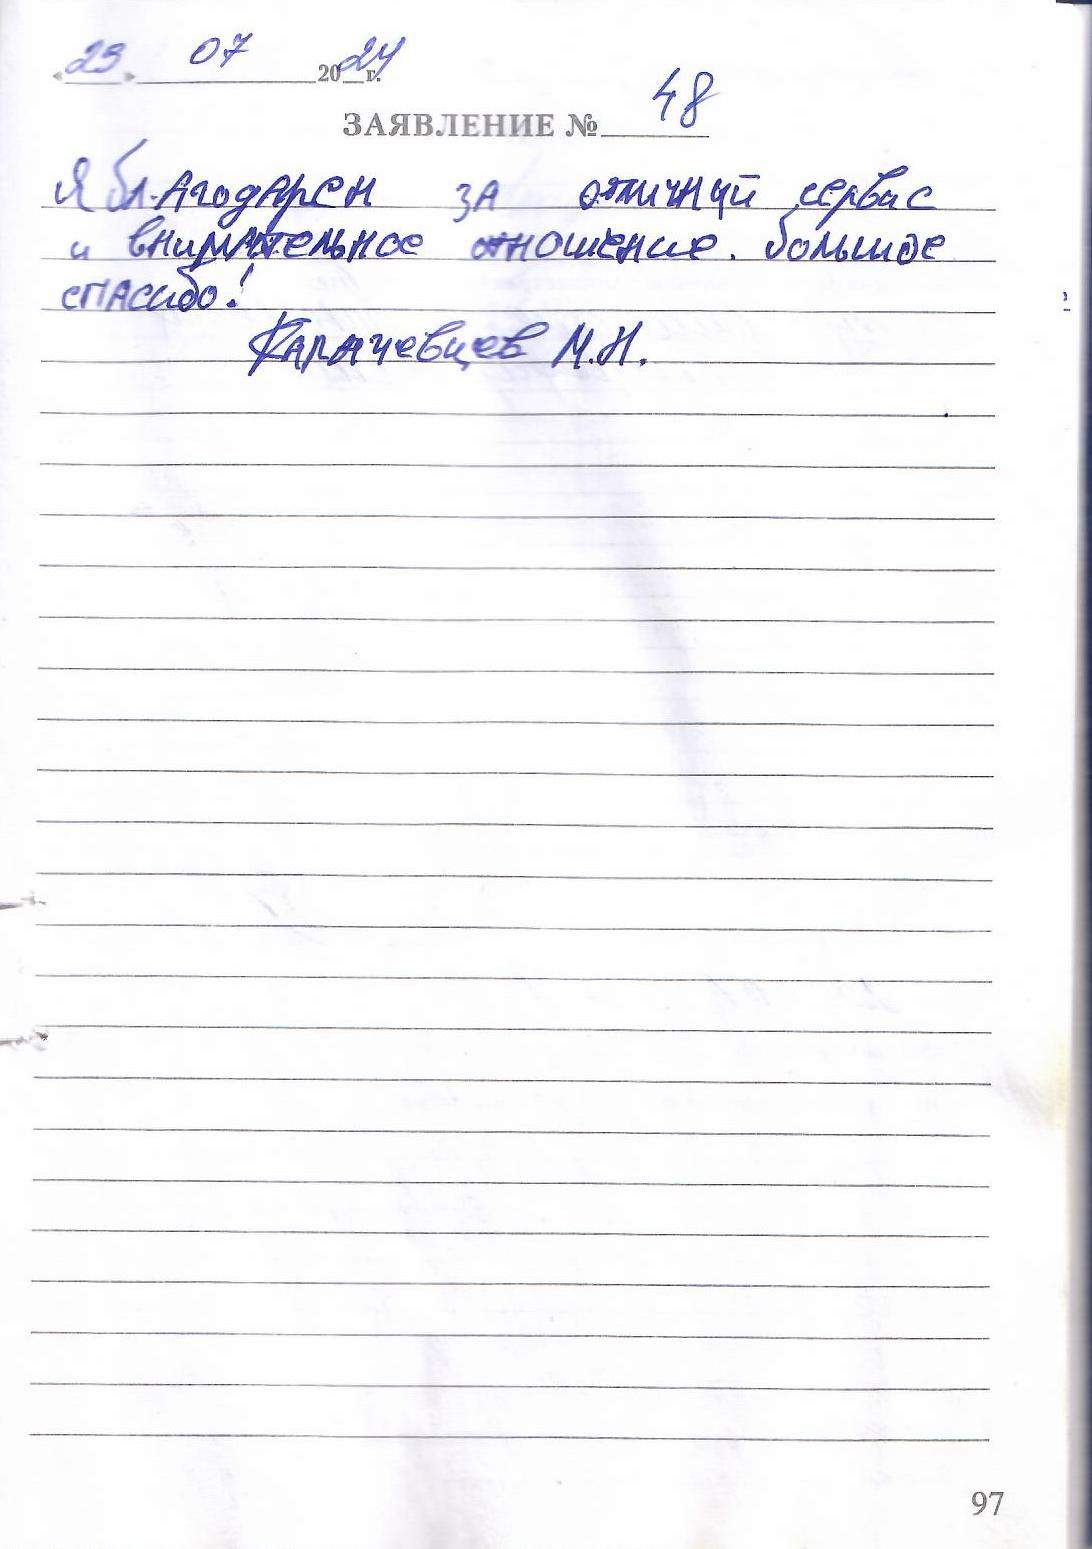 «23» 07 2024 г.
ЗАЯВЛЕНИЕ № 48
Я благодарен за отличный сервис
и внимательное отношение. большое
спасибо!
Карачевцев М.Н.
97